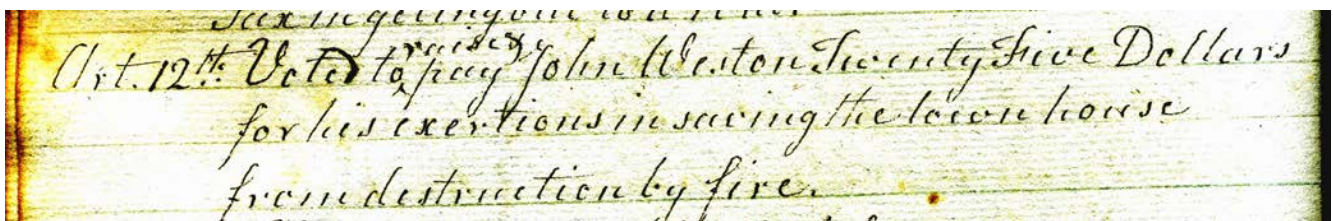 Art. 12th. Voted to raise & pay John Weston Twenty Five Dollars
for his exertions in saving the town house
from destruction by fire.